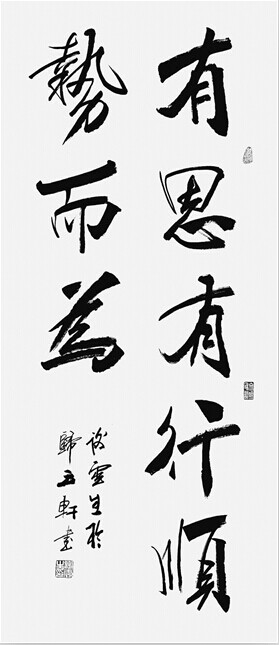 有恩有行順
勢而為
雲生於
歸玉軒書